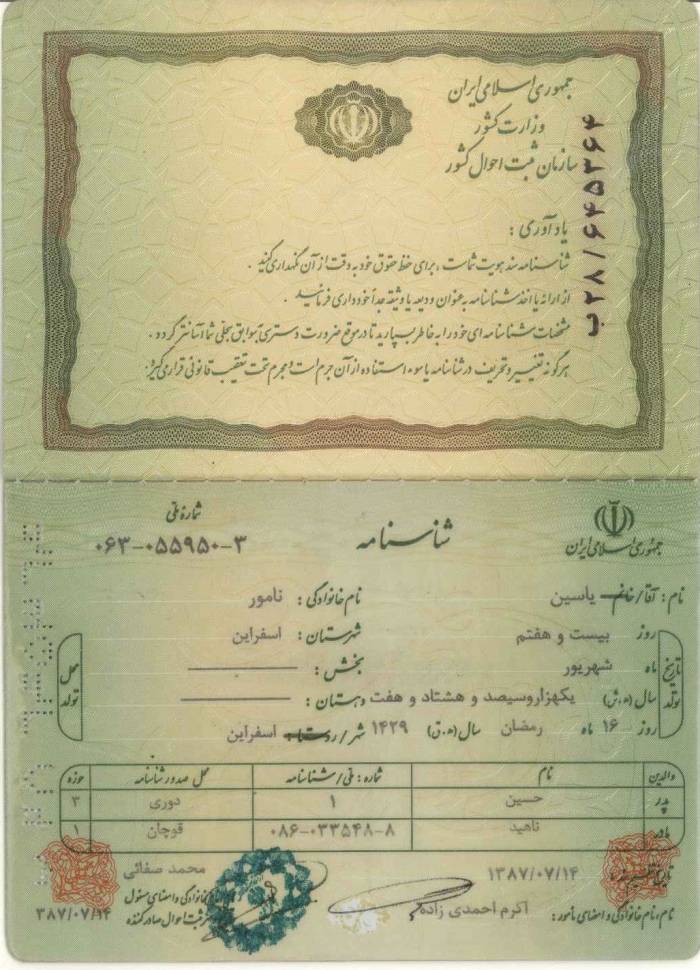 جمهوری اسلامی ایران
وزارت کشور
سازمان ثبت احوال کشور
ب۲۸/۶۴۵۲۶۴
یادآوری :
شناسنامه سند هویت شماست ، برای حفظ حقوق خود به دقت از آن نگهداری کنید .
از ارائه یا اخذ شناسنامه به عنوان ودیعه یا وثیقه جداً خودداری فرمائید .
مشخصات شناسنامه ای خود را به خاطر بسپارید تا در موقع ضرورت دسترسی به سوابق سجلی شما آسانتر گردد .
هرگونه تغییر و تحریف در شناسنامه یا سوء استفاده از آن جرم است و مجرم تحت تعقیب قانونی قرار می گیرد .
جمهوری اسلامی ایران
شناسنامه
شماره ملی
۰۶۳-۰۵۵۹۵۰-۳
نام : آقا/خانم یاسین نام خانوادگی : نامور
تاریخ تولد
روز بیست و هفتم شهرستان : اسفراین
ماه شهریور بخش :
سال (ه.ش) یکهزاروسیصد و هشتاد و هفت دهستان :
روز ۱۶ ماه رمضان سال (ه.ق) ۱۴۲۹ شهر/روستا : اسفراین
محل تولد
والدین نام شماره : ملی/شناسنامه محل صدور شناسنامه حوزه
پدر حسین ۱ دوری ۳
مادر ناهید ۰۸۶-۰۳۳۵۴۸-۸ قوچان ۱
تاریخ تنظیم ۱۳۸۷/۰۷/۱۴ محمد صفائی
نام، نام خانوادگی و امضای مأمور : اکرم احمدی زاده
نام خانوادگی و امضای مسئول
ثبت احوال صادرکننده
۳۸۷/۰۷/۱۴